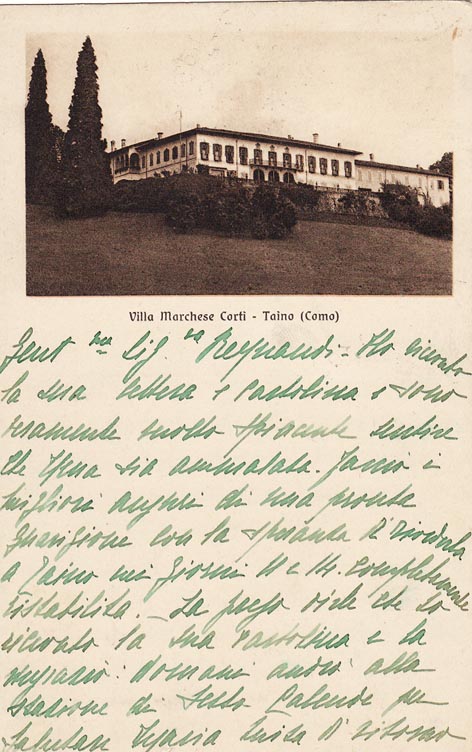 Villa Marchese Corti - Taino (Como)
Gent.ma Sig.ra Reynaudi - Ho ricevuto
la sua lettera e cartolina e sono
veramente molto spiacente sentire
che sia ammalata. Faccio i
migliori auguri di una pronta
guarigione con la speranza di rivederla
a Taino nei giorni e 14. completamente
ristabilita. - La prego dirle che ho
ricevuto la sua cartolina e la
ringrazio. Domani andrò alla
stazione di Sesto Calende per
salutare Maria Luisa di ritorno